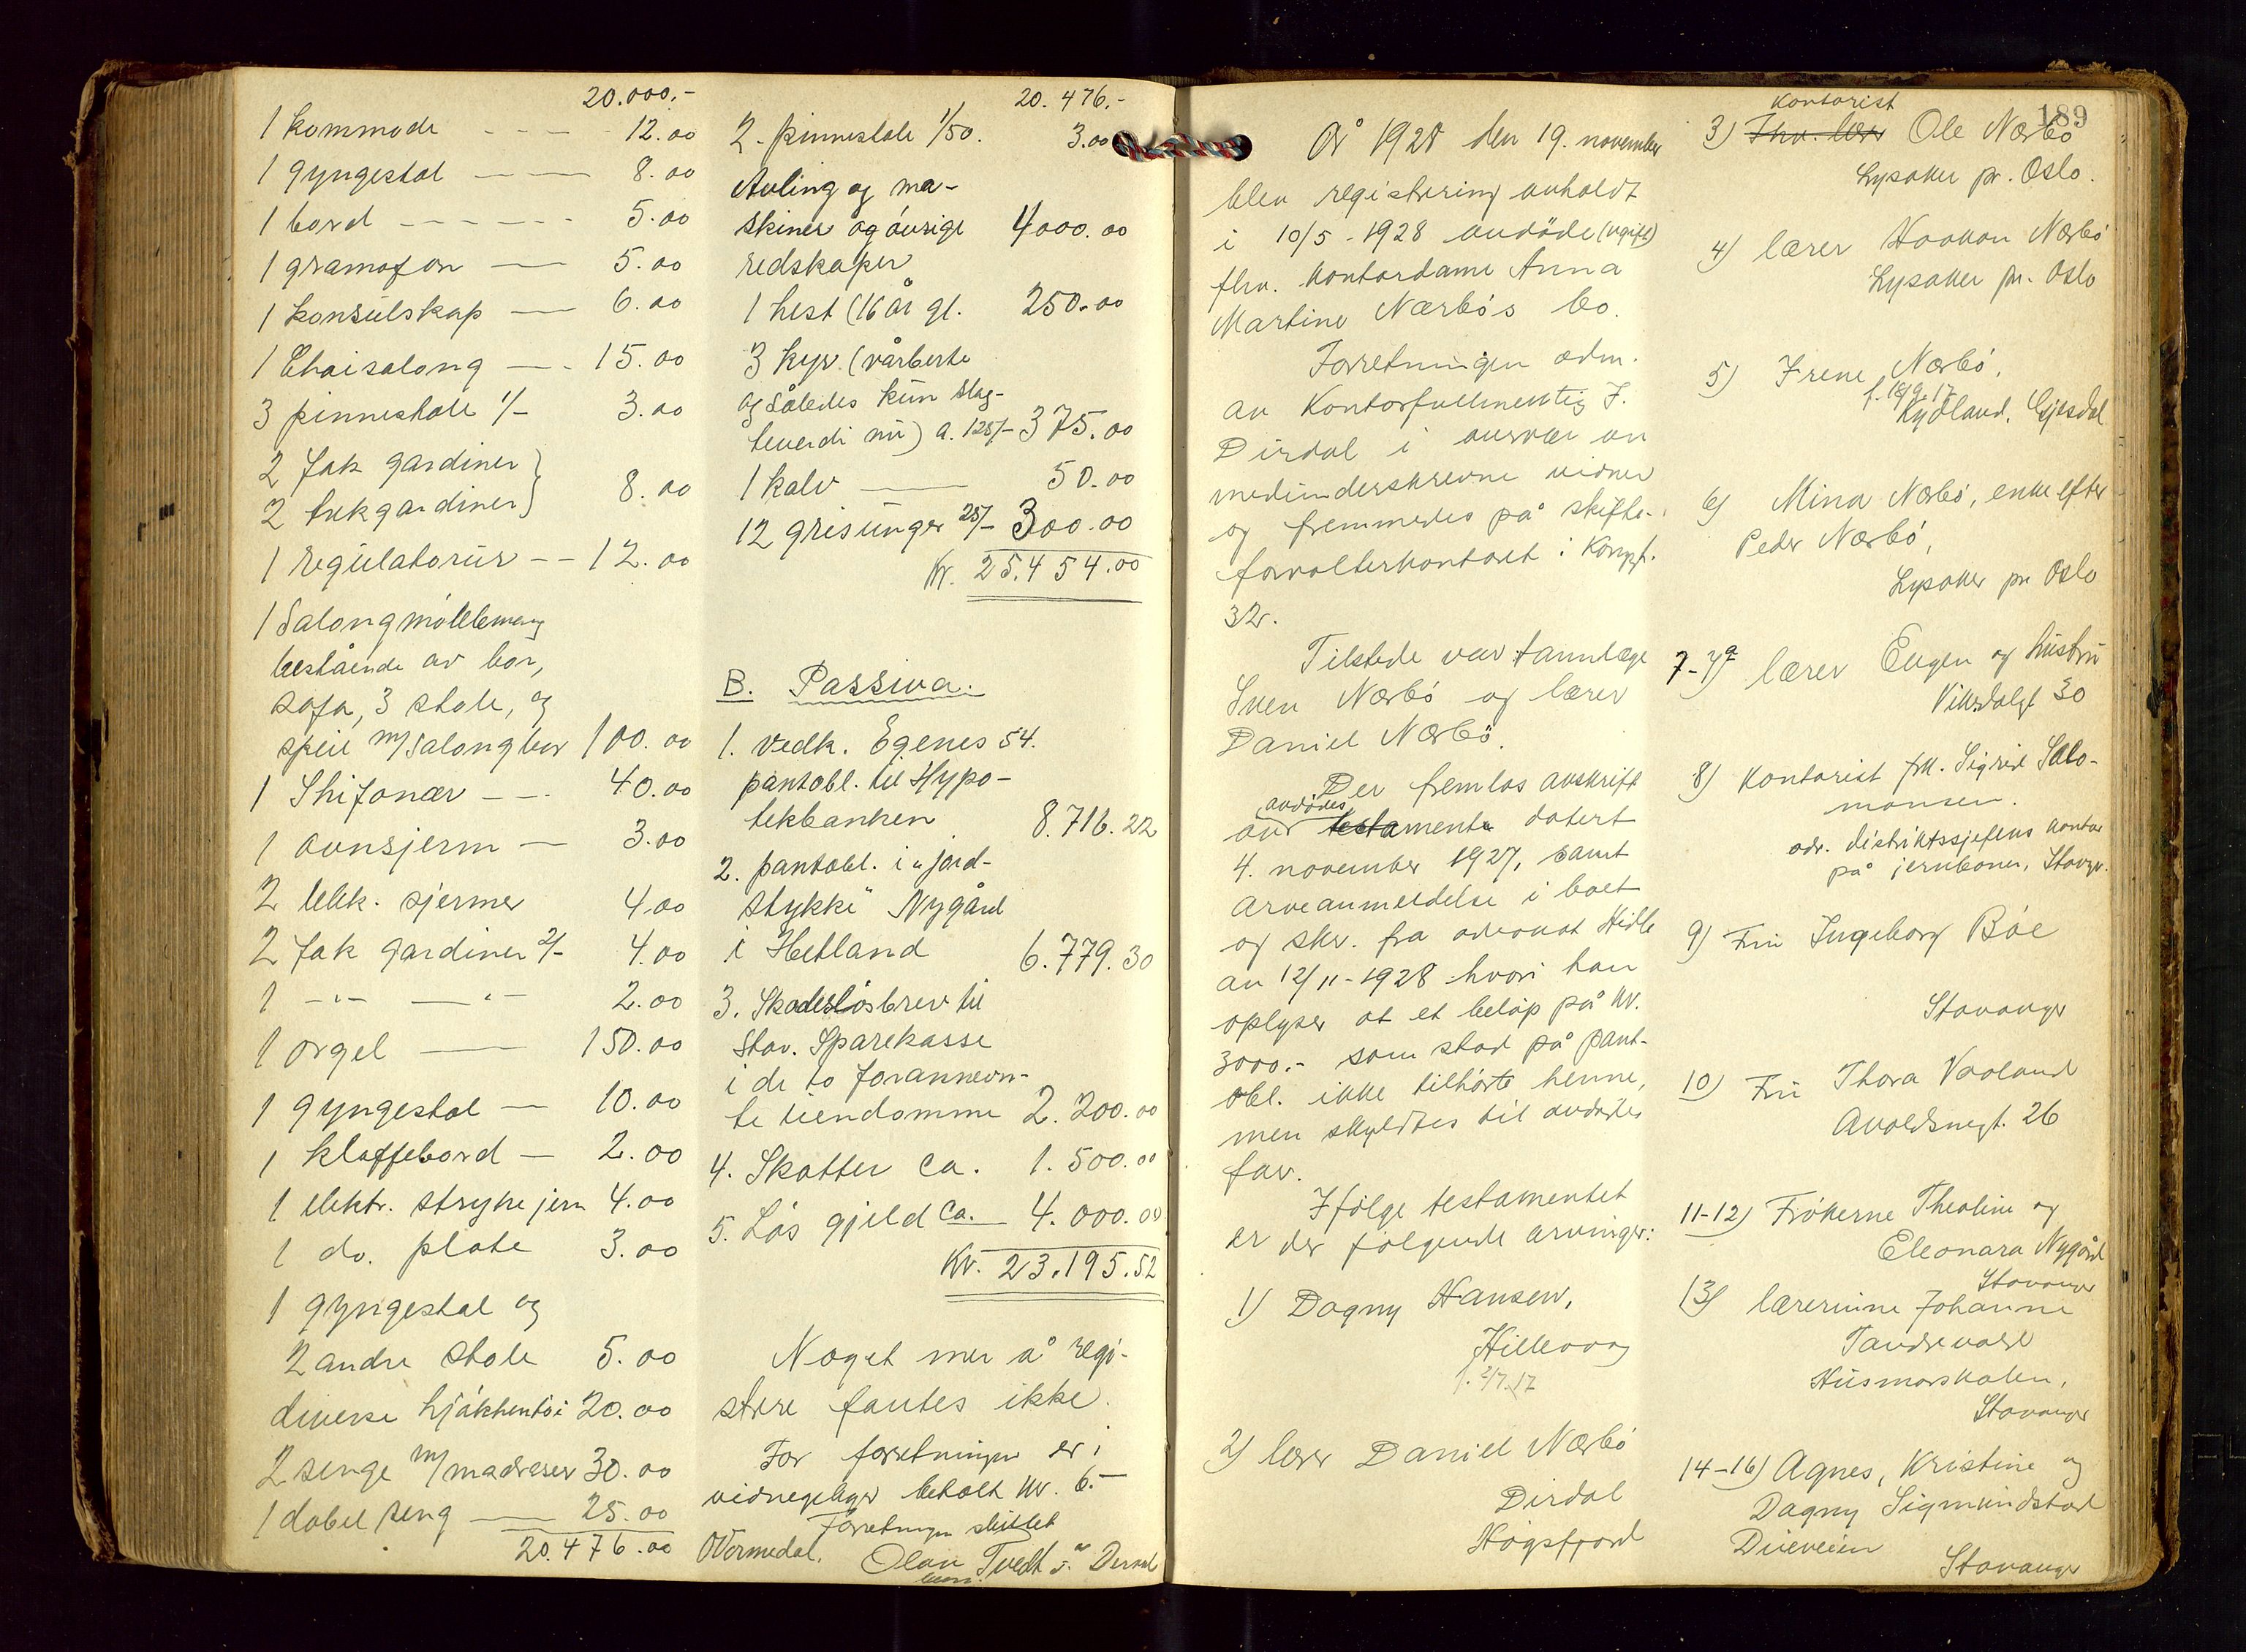 20.000,-
1 kommode - - - - 12.00
1 gyngestol — — 8.00
1 bord - - - - - - 5.00
1 gramofon — 5.00
1 konsulskap — 6.00
1 Chaisalong — - 15.00
3 pinnestole 1/- 3.00
2 fak gardiner }
2 trekgardiner } 8.00
1 regulatorur - - 12.00
1 Salongmøblement
bestående av bor,
sofa, 3 stole, og
speil m/salongbor 100.00
1 Shifonær - - . 40.00
1 ovnsjerm — 3.00
2 elek. sjermer 4.00
2 fak gardiner 2/- 4.00
1 -"- —"- 2.00
1 orgel — 150.00
1 gyngestol — 10.00
1 klaffebord — 2.00
1 elektr. strykejern 4.00
1 do. plate 3.00
1 gyngestol og
2 andre stole 5.00
diverse kjøkkentøi 20.00
2 senge m/madraser 30.00
1 dobel seng — 25.00
20.476.00
20.476.-
2 - pinnestole 1/50. 3.00
Avling og ma-
skiner og øvrige 4000.00
redskaper
1 hest (16 år gl. 250.00
3 kyr (vårberte
og således kun slag-
teverdi nu) a. 125/- 375.00
1 kalv — 50.00
12 grisunger 25/- 300.00
Kr. 25.454.00
B. Passiva.
1. vedk. Egenes 54.
pantobl. til Hypo-
tekbanken 8.716.22
2. pantobl. i "jord-
stykke" Nygård
i Hetland 6.779.30
3. Skadesløsbrev til
Stav. Sparekasse
i de to forannevn-
te eiendomme 2.200.00
4. Skatter ca. 1.500.00
5. Løs gjeld ca. — 4.000.00
Kr. 23.195.52
Noget mer å regi-
strere fantes ikke.
For forretningen er i
vidnegebyr betalt kr. 6.-
Forretningen sluttet
O Vormedal. Olav Tvedt J. Dirdal
189
År 1928 den 19. november
blev registrering avholdt
i 10/5 - 1928 avdøde (ugift)
fhv. kontordame Anna
Martine Nærbø's bo.
Forretningen adm.
av Kontorfullmektig J.
Dirdal i overvær av
medunderskrevne vidner
og fremmedes på skifte-
forvalterkontoret i Kongsgt.
32.
Tilstede var tannlæge
Sven Nærbø og lærer
Daniel Nærbø.
Der fremlas avskrift
avdødes
av testamente datert
4. november 1927, samt
arveanmeldelse i boet
og skr. fra advokat Hidle
av 12/11 - 1928 hvori han
oplyser at et beløp på kr.
3000.- som stod på pant-
obl. ikke tilhørte henne,
men skyldtes til avdødes
far.
Ifølge testamentet
er der følgende arvinger:
1) Dagny Hansen,
Hillevåg
f. 2/7.17
2) lærer Daniel Nærbø
Dirdal
Høgsfjord
kontorist
3) Fhv. lær Ole Nærbø
Lysaker pr. Oslo.
4) lærer Haakon Nærbø
Lysaker pr. Oslo
5) Irene Nærbø,
f. 18/9.17
Kydland, Gjesdal
6) Mina Nærbø, enke efter
Peder Nærbø,
Lysaker pr Oslo
7-7a lærer Eugen og hustru
Vikedalgt 30
8) Kontorist frk. Sigrid Salo-
monsen.
adr. distriktssjefens kontor
på jernbanen, Stavgr.
9) Fru Ingeborg Bøe
Stavanger
10) Fru Thora Vaaland
Avaldsnesgt. 26
11-12) Frøknerne Theoline og
Eleonara Nygård
Stavanger
13) lærerinne Johanne
Tandrevold
Husmorskolen,
Stavanger
14-16) Agnes, Kristine og
Dagny Sigmundstad
Dueveien
Stavanger